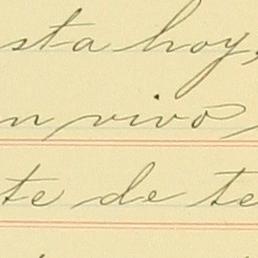 sta hoy,
n vivo
te de te